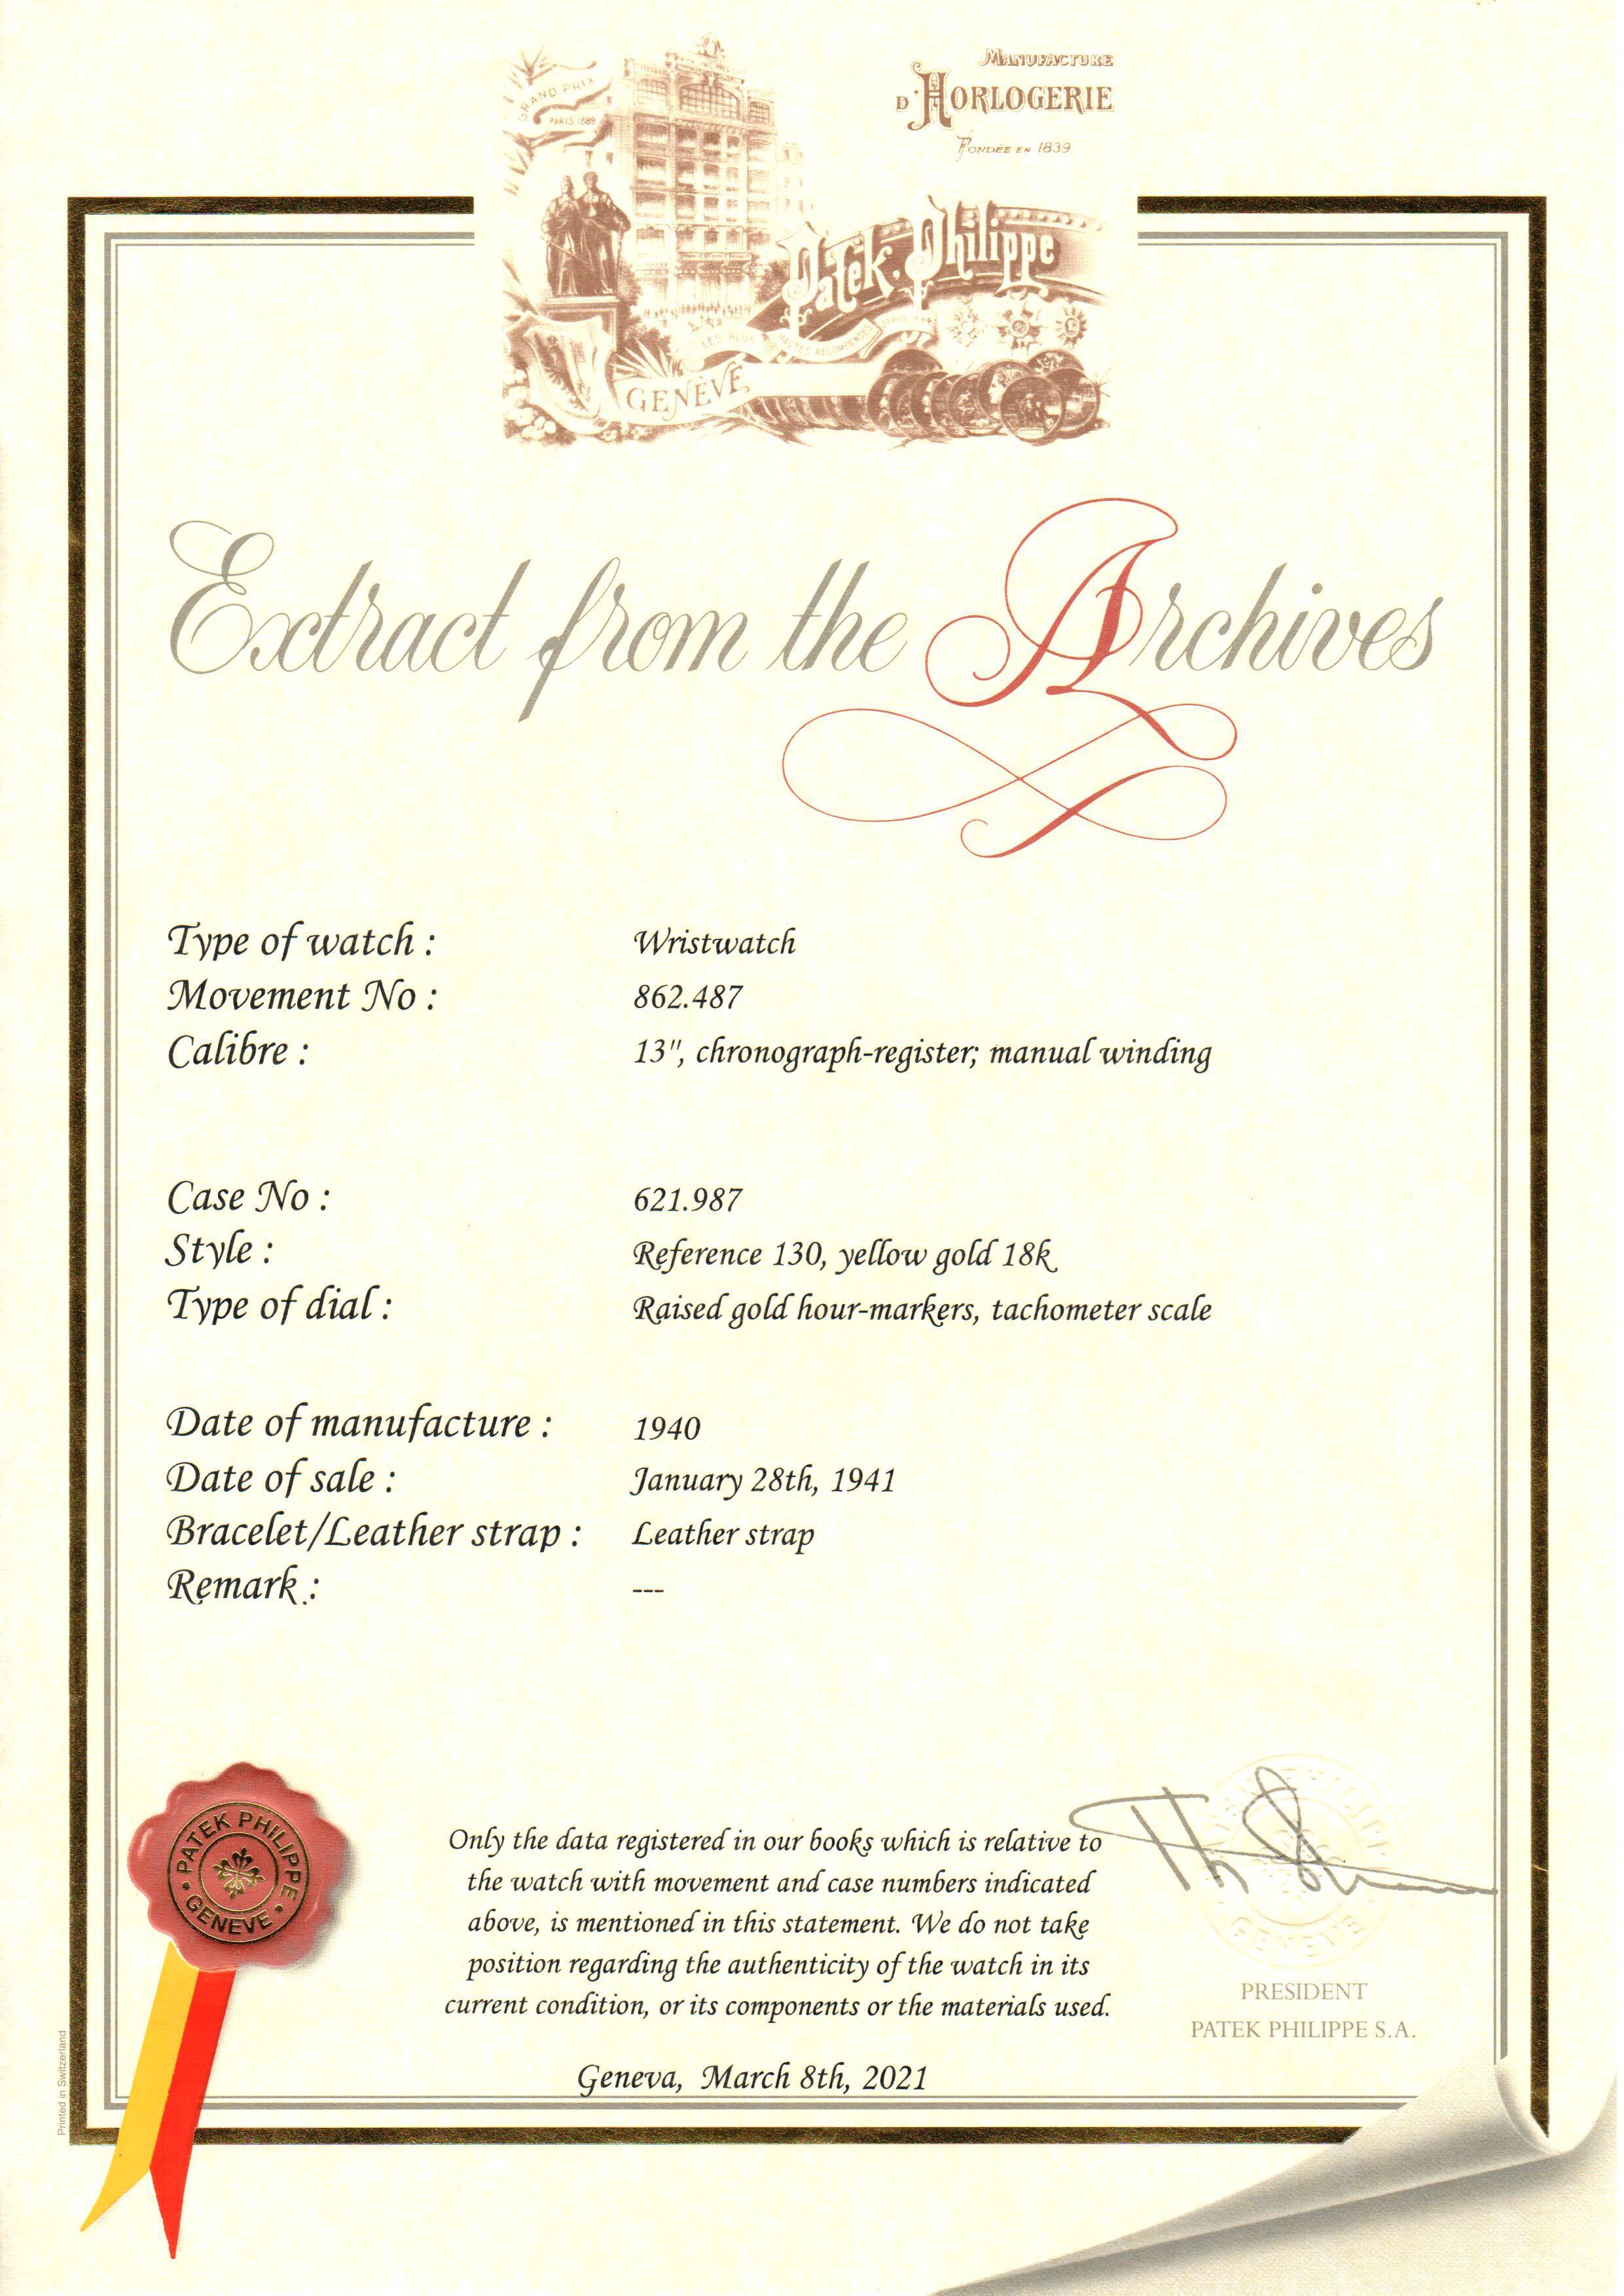 MANUFACTURE
D'HORLOGERIE
FONDÉE EN 1839
GRAND PRIX
PARIS 1889
Patek Philippe
LES PLUS HAUTES RECOMPENSES
GENÈVE
Extract from the Archives
Type of watch : Wristwatch
Movement No : 862.487
Calibre : 13", chronograph-register; manual winding
Case No : 621.987
Style : Reference 130, yellow gold 18k
Type of dial : Raised gold hour-markers, tachometer scale
Date of manufacture : 1940
Date of sale : January 28th, 1941
Bracelet/Leather strap : Leather strap
Remark : ---
PATEK PHILIPPE
GENEVE
Only the data registered in our books which is relative to
the watch with movement and case numbers indicated
above, is mentioned in this statement. We do not take
position regarding the authenticity of the watch in its
current condition, or its components or the materials used.
GENEVE
PRESIDENT
PATEK PHILIPPE S.A.
Geneva, March 8th, 2021
Printed in Switzerland